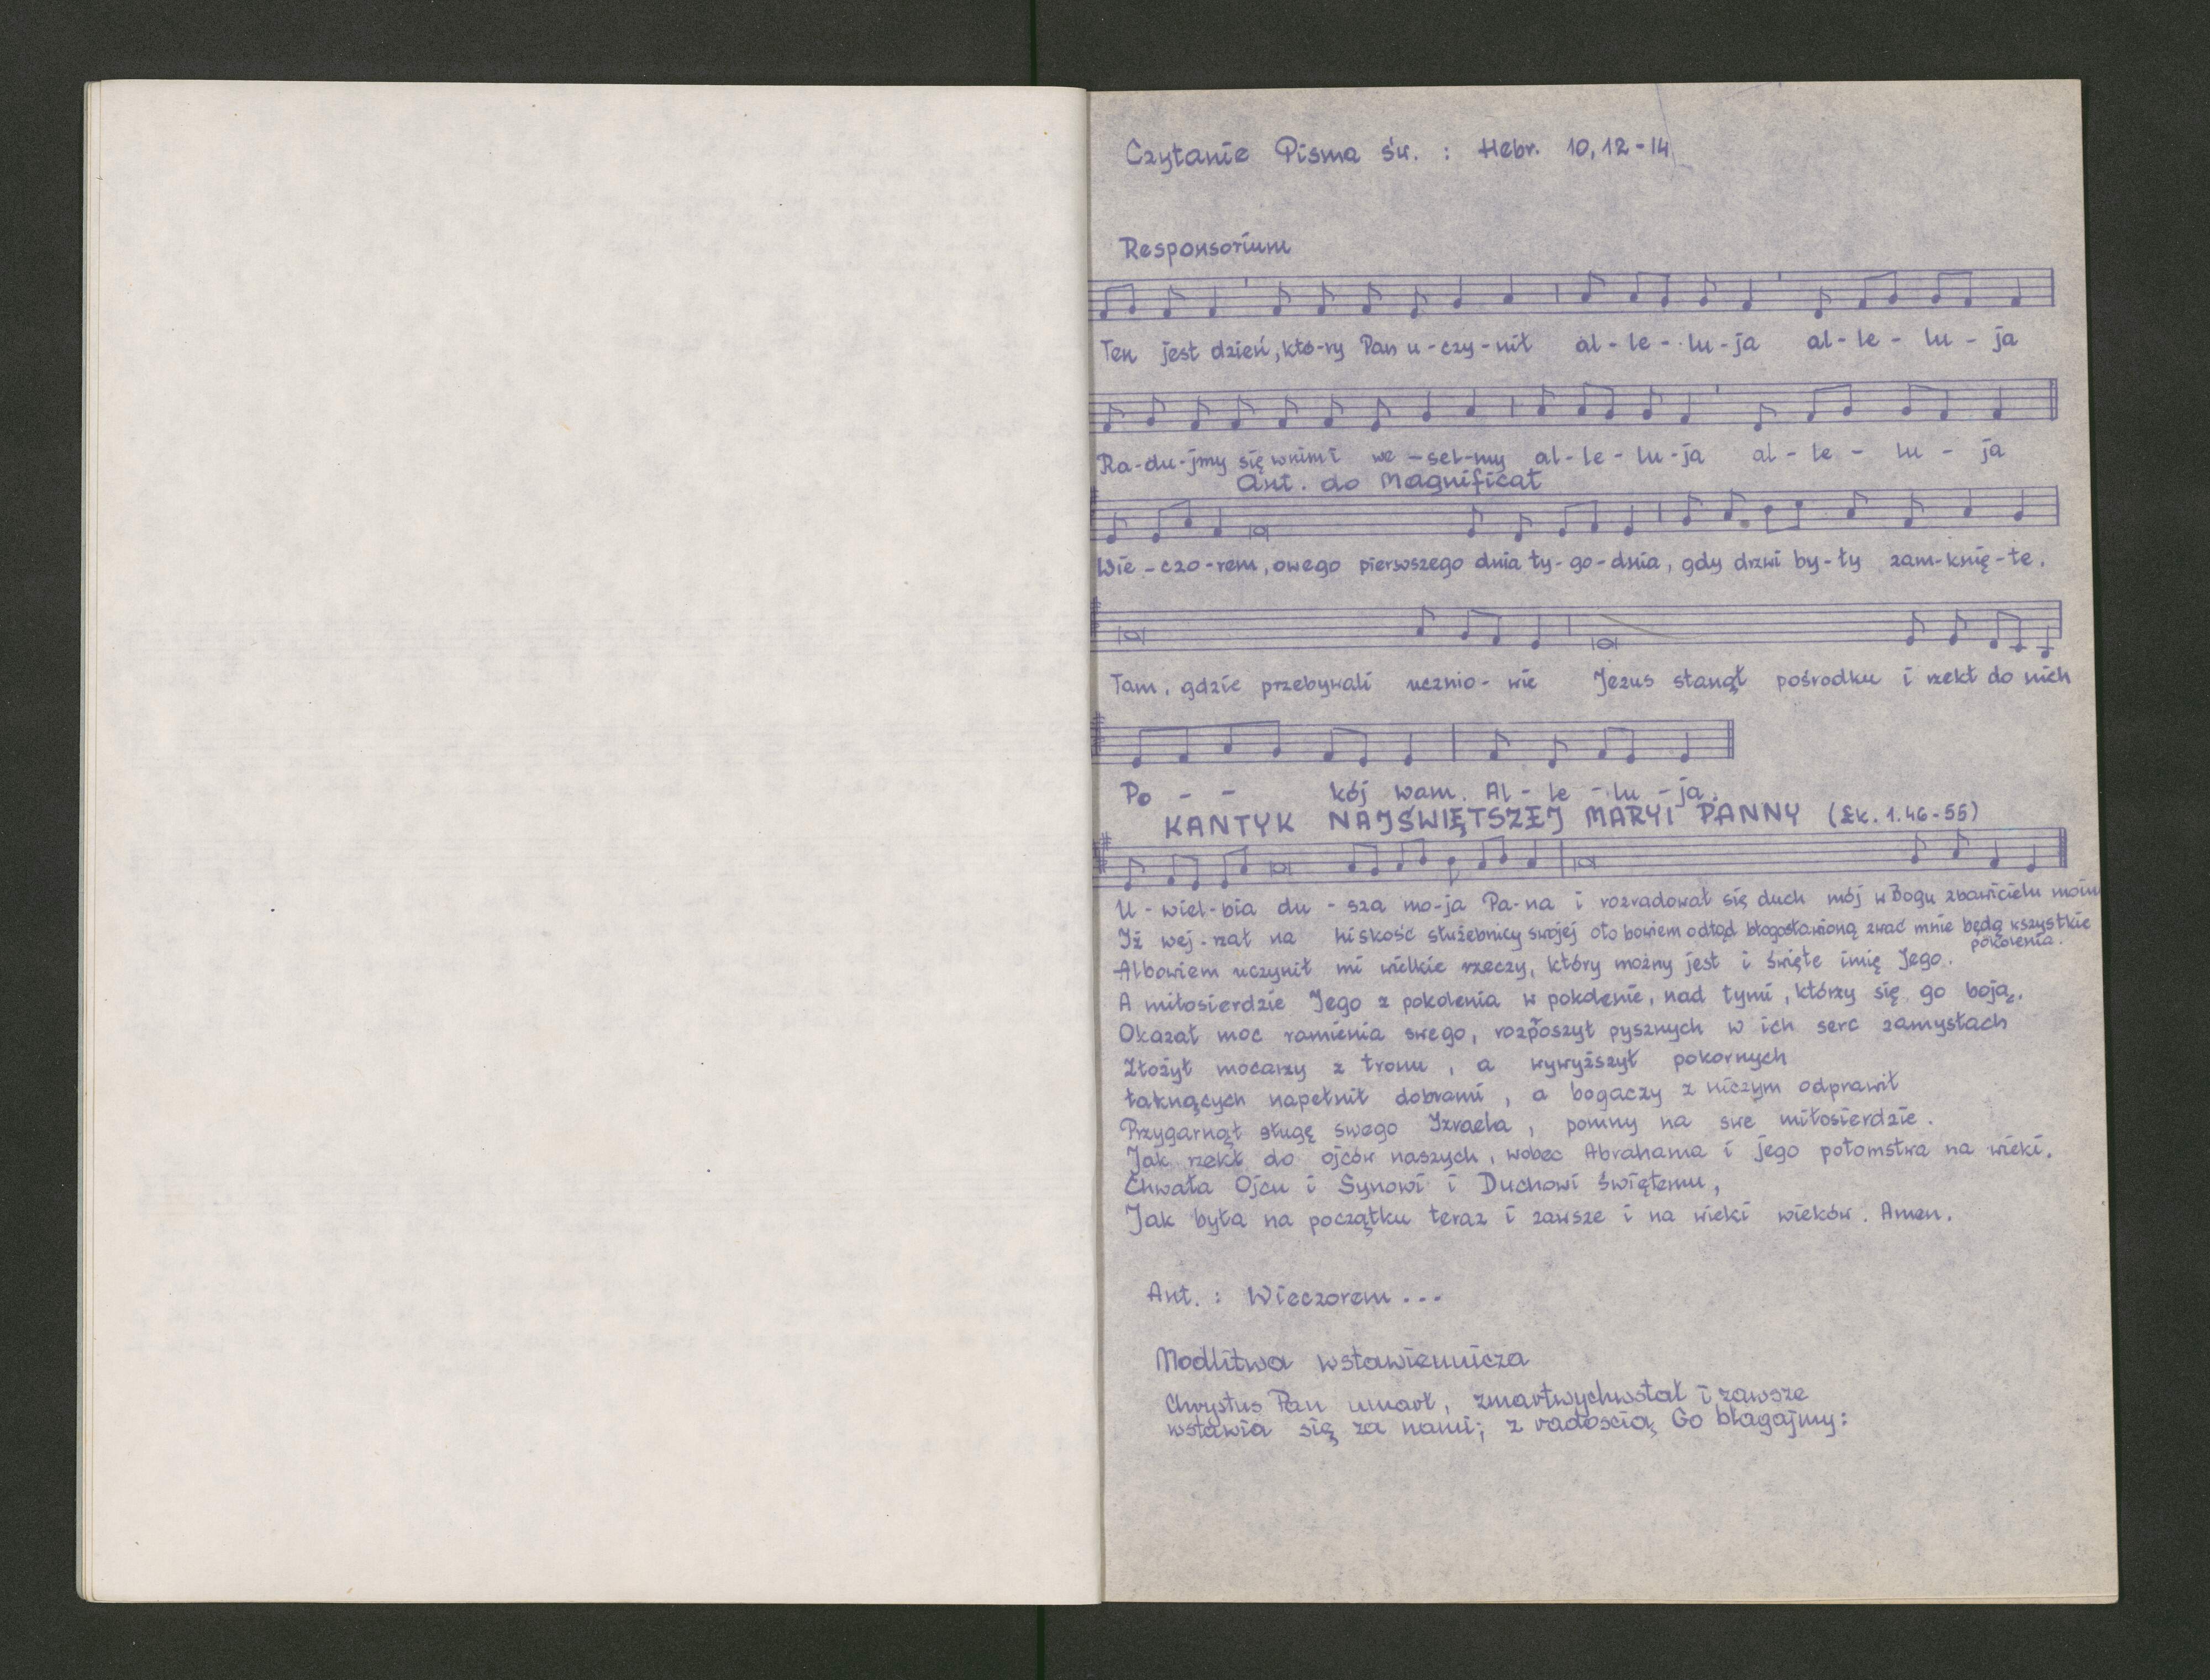 Czytanie Pisma św. : Hebr. 10, 12-14
Responsorium
Ten jest dzień, któ-ry Pan u-czy-nił al-le-lu-ja al-le-lu-ja
Ra-du-jmy się w nim i we-sel-my al-le-lu-ja al-le-lu-ja
Ant. do Magnificat
Wie-czo-rem, owego pierwszego dnia ty-go-dnia, gdy drzwi by-ły zam-knię-te.
Tam, gdzie przebywali ucznio-wie Jezus stanął pośrodku i rzekł do nich
Po - - kój wam. Al-le-lu-ja.
KANTYK NAJŚWIĘTSZEJ MARYI PANNY (Łk. 1.46-55)
U-wiel-bia du-sza mo-ja Pa-na i rozradował się duch mój w Bogu zbawicielu moim
Iż wej-rzał na niskość służebnicy swojej oto bowiem odtąd błogosławioną zwać mnie będą wszystkie
pokolenia.
Albowiem uczynił mi wielkie rzeczy, który możny jest i święte imię Jego.
A miłosierdzie Jego z pokolenia w pokolenie, nad tymi, którzy się go boją.
Okazał moc ramienia swego, rozproszył pysznych w ich serc zamysłach
Złożył mocarzy z tronu, a wywyższył pokornych
łaknących napełnił dobrami, a bogaczy z niczym odprawił
Przygarnął sługę swego Izraela, pomny na swe miłosierdzie.
Jak rzekł do ojców naszych, wobec Abrahama i jego potomstwa na wieki.
Chwała Ojcu i Synowi i Duchowi świętemu,
Jak była na początku teraz i zawsze i na wieki wieków. Amen.
Ant. : Wieczorem...
Modlitwa wstawiennicza
Chrystus Pan umarł, zmartwychwstał i zawsze
wstawia się za nami; z radością Go błagajmy: